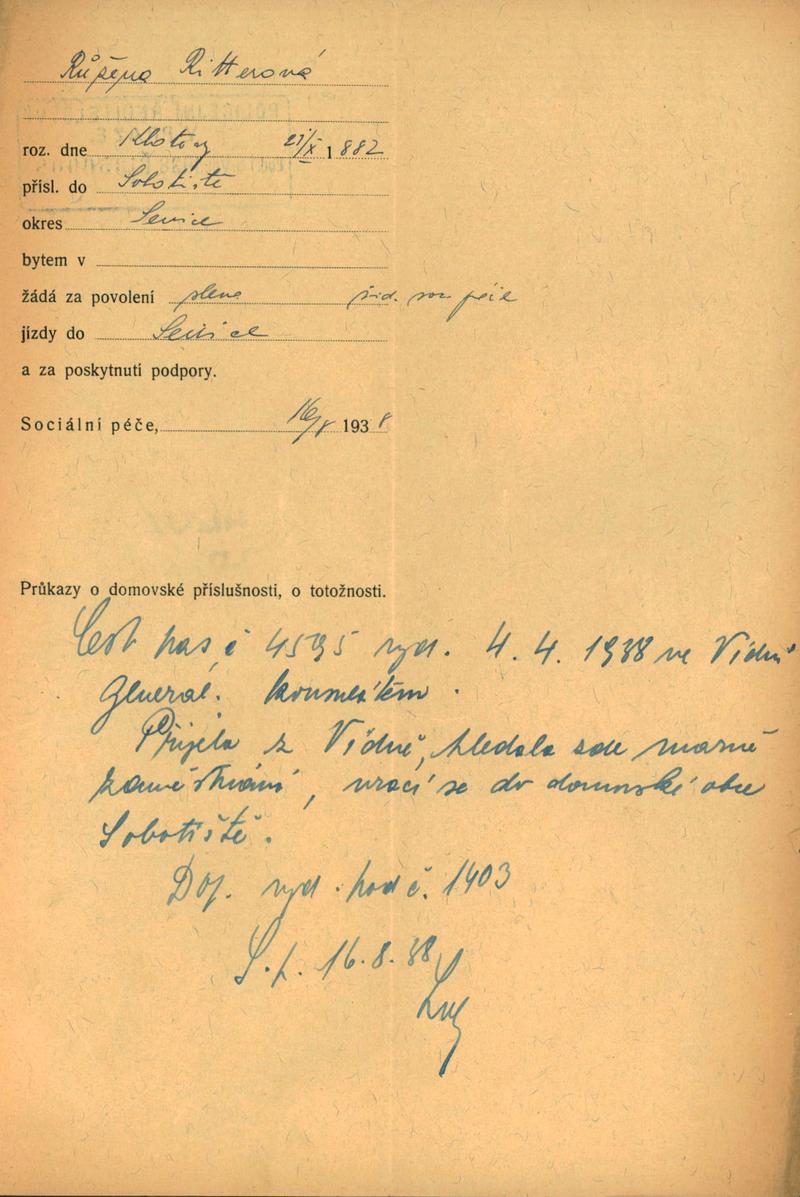 Růžena Ritterová
roz. dne Klatovy 21/X 1882
přísl. do Sobotiště
okres Senice
bytem v
žádá za povolení slevy
jízdy do Senice
a za poskytnutí podpory.
Sociální péče, 16/8 1938
Průkazy o domovské příslušnosti, o totožnosti.
Cest pas č 4595 vyd. 4. 4. 1938 ve Vídni
General. konsulátem.
Přijela z Vídně, hledala zde marně
zaměstnání, vrací se do domovské obce
Sobotiště.
Dop. vyd. pod č. 1403
S. p. 16.8.38